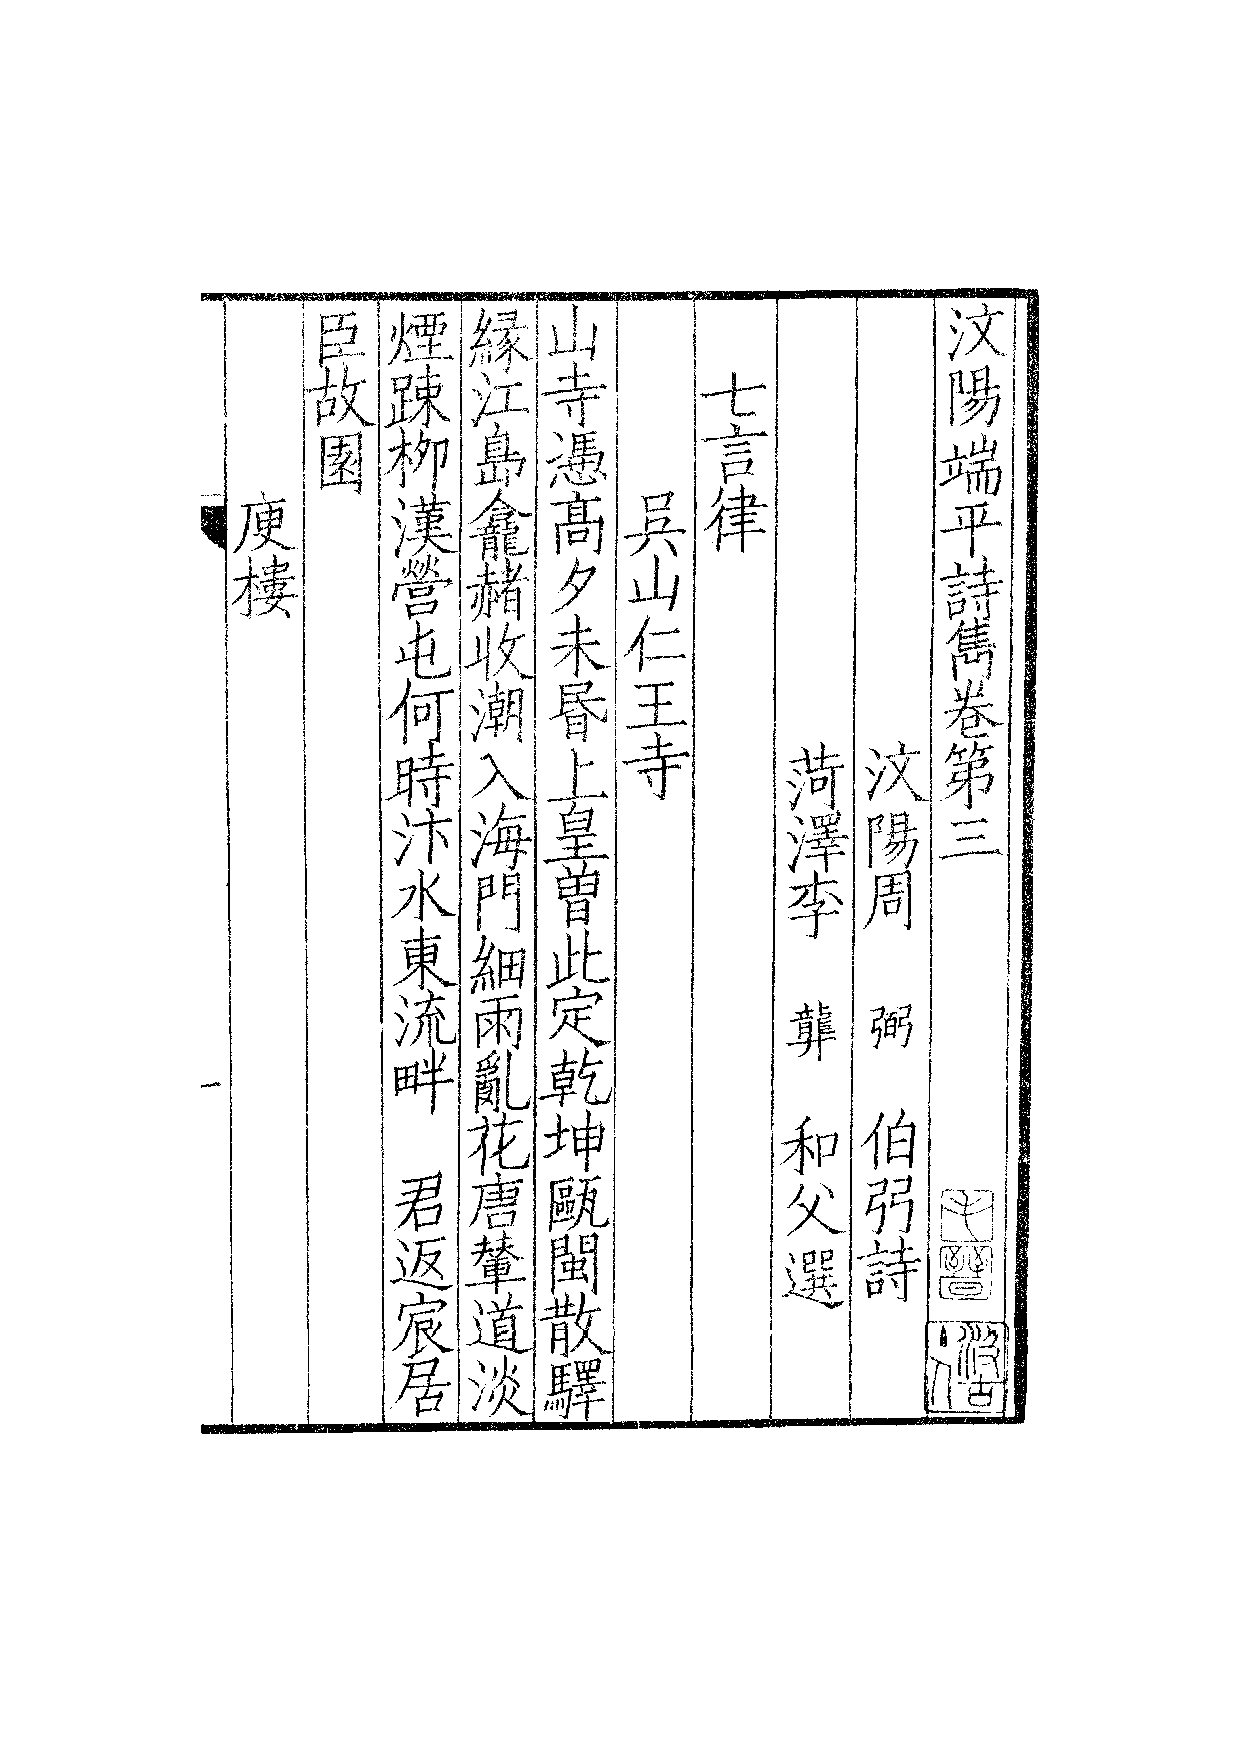 汶陽端平詩雋卷第三
汶陽周 弼 伯弜詩
菏澤李 龏 和父選
七言律
吳山仁王寺
山寺憑髙夕未昬上皇曽此定乾坤甌閩散驛
緣江島龕赭收潮入海門細雨亂花唐輦道淡
煙踈栁漢營屯何時汴水東流畔 君返宸居
臣故園
庾樓
一